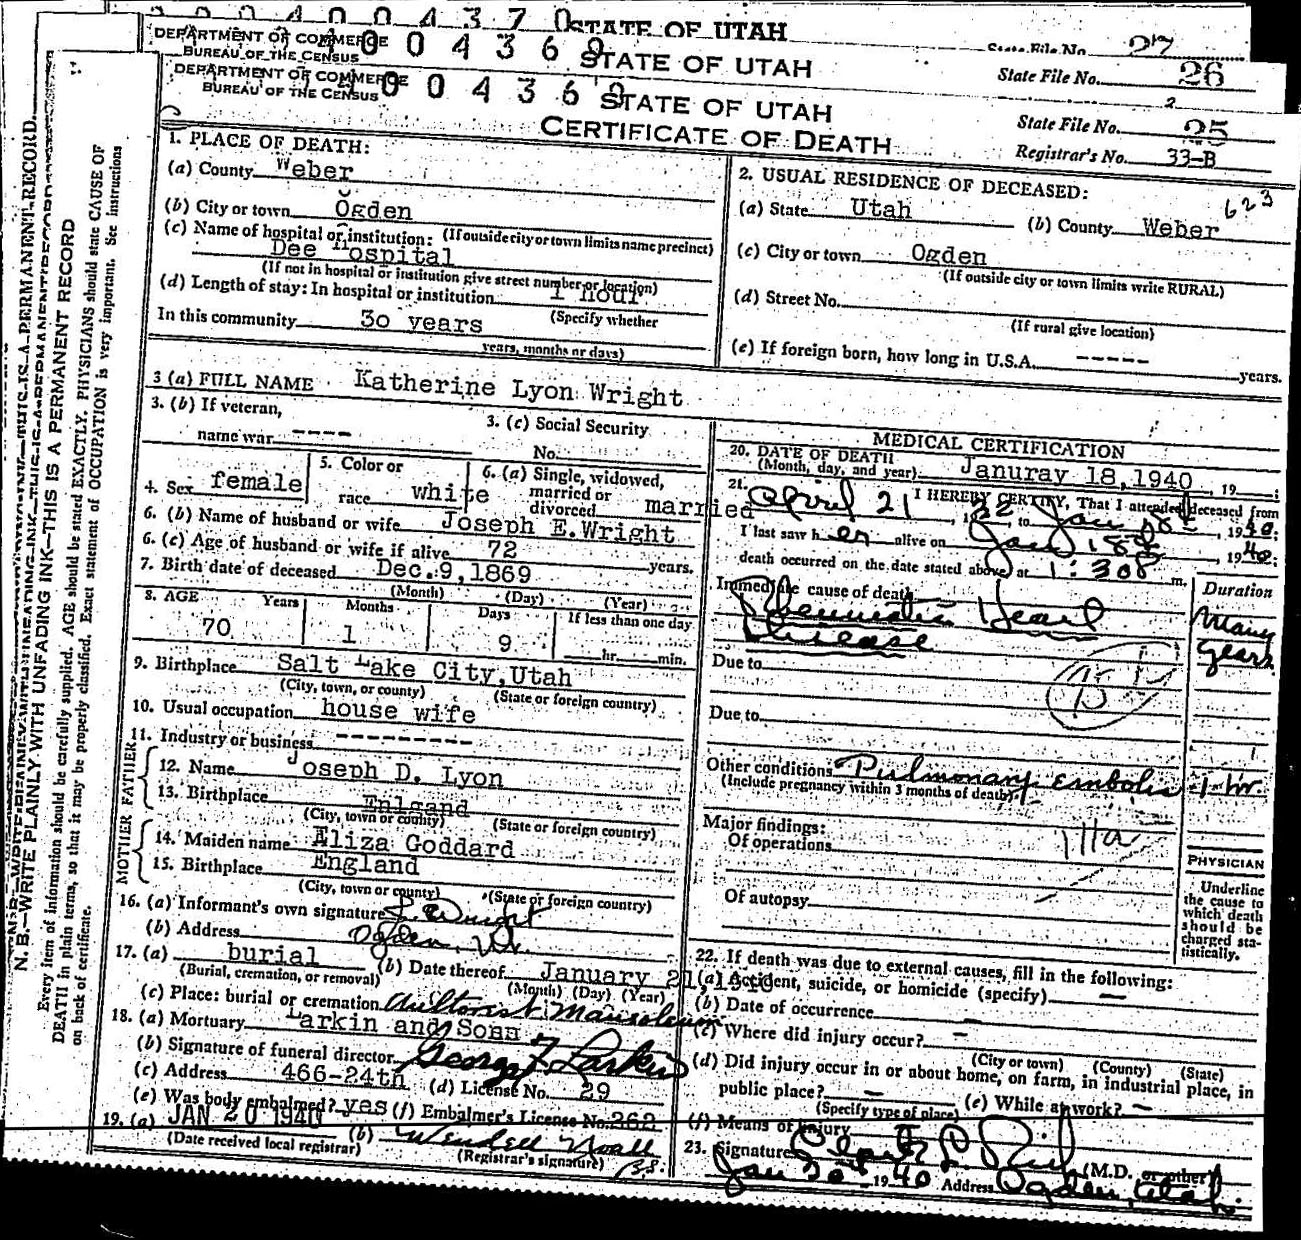 2 0 0 4 0 0 4 3 7 0 STATE OF UTAH
State File No. 27
DEPARTMENT OF COMMERCE
BUREAU OF THE CENSUS
4 0 0 4 3 6 9
STATE OF UTAH
State File No. 26
DEPARTMENT OF COMMERCE
BUREAU OF THE CENSUS
4 0 0 4 3 6 8
STATE OF UTAH
CERTIFICATE OF DEATH
State File No. 25
Registrar's No. 33-B
N. B.—WRITE PLAINLY WITH UNFADING INK—THIS IS A PERMANENT RECORD
Every item of information should be carefully supplied. AGE should be stated EXACTLY. PHYSICIANS should state CAUSE OF
DEATH in plain terms, so that it may be properly classified. Exact statement of OCCUPATION is very important. See instructions
on back of certificate.
1. PLACE OF DEATH:
(a) County Weber
(b) City or town Ogden
(c) Name of hospital or institution: (If outside city or town limits name precinct)
Dee Hospital
(If not in hospital or institution give street number or location)
(d) Length of stay: In hospital or institution 1 hour
(Specify whether
In this community 30 years
years, months or days)
2. USUAL RESIDENCE OF DECEASED:
623
(a) State Utah (b) County Weber
(c) City or town Ogden
(If outside city or town limits write RURAL)
(d) Street No.
(If rural give location)
(e) If foreign born, how long in U.S.A. ----- years.
3 (a) FULL NAME Katherine Lyon Wright
3. (b) If veteran,
name war ----
3. (c) Social Security
No.
4. Sex female
5. Color or
race white
6. (a) Single, widowed,
married or
divorced married
6. (b) Name of husband or wife Joseph E.Wright
6. (c) Age of husband or wife if alive 72 years.
7. Birth date of deceased Dec.9,1869
(Month) (Day) (Year)
8. AGE Years Months Days If less than one day
70 1 9 hr. min.
9. Birthplace Salt Lake City,Utah
(City, town, or county) (State or foreign country)
10. Usual occupation house wife
11. Industry or business ---------
FATHER
12. Name Joseph D. Lyon
13. Birthplace Enlgand
(City, town or county) (State or foreign country)
MOTHER
14. Maiden name Eliza Goddard
15. Birthplace England
(City, town or county) (State or foreign country)
16. (a) Informant's own signature Wright
(b) Address Ogden, Ut.
17. (a) burial (b) Date thereof January 21,1940
(Burial, cremation, or removal) (Month) (Day) (Year)
(c) Place: burial or cremation Aultorest Mausoleum
18. (a) Mortuary Larkin and Sons
(b) Signature of funeral director George F Larkin
(c) Address 466-24th (d) License No. 29
(e) Was body embalmed? yes (f) Embalmer's License No. 362
19. (a) JAN 20 1940 (b) Wendell Noall
(Date received local registrar) (Registrar's signature)
MEDICAL CERTIFICATION
20. DATE OF DEATH
(Month, day, and year) Januray 18,1940, 19 ;
21. I HEREBY CERTIFY, That I attended deceased from
April 21, 1932, to Jan 18th, 1940;
I last saw her alive on Jan 18th, 1940;
death occurred on the date stated above, at 1:30 m.
Immediate cause of death Duration
Rheumatic Heart Many
Disease years
Due to
Due to
Other conditions Pulmonary embolis 1 hr.
(Include pregnancy within 3 months of death)
Major findings:
Of operations
111a
Of autopsy
PHYSICIAN
Underline
the cause to
which death
should be
charged sta-
tistically.
22. If death was due to external causes, fill in the following:
(a) Accident, suicide, or homicide (specify) —
(b) Date of occurrence —
(c) Where did injury occur? —
(City or town) (County) (State)
(d) Did injury occur in or about home, on farm, in industrial place, in
public place? — (e) While at work? —
(Specify type of place)
(f) Means of injury
23. Signature Rich (M.D. or other)
Jan 20th 1940 Address Ogden, Utah.